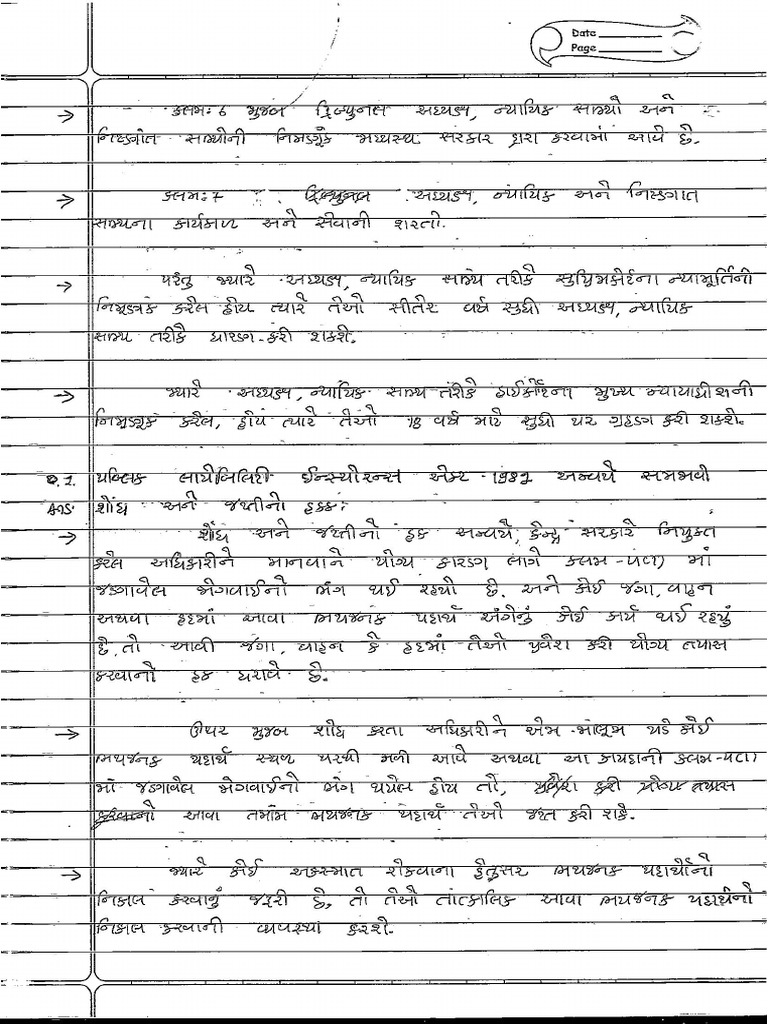 Date
Page
→ કલમઃ 6 મુજબ ટ્રિબ્યુનલ અધ્યક્ષ, ન્યાયિક સાભ્યો અને
નિષ્ણાંત સભ્યોની નિમણૂંક મધ્યસ્થ સરકાર દ્વારા કરવામાં આવે છે.
→ કલમઃ 7 ટ્રિબ્યુનલ અધ્યક્ષ, ન્યાયિક અને નિષ્ણાત
સભ્યના કાર્યકાળ અને સેવાની શરતો.
→ પરંતુ જ્યારે અધ્યક્ષ, ન્યાયિક સભ્ય તરીકે સુપ્રિમકોર્ટના ન્યામૂર્તિની
નિમણૂંક કરેલ હોય ત્યારે તેઓ સીતેર વર્ષ સુધી અધ્યક્ષ, ન્યાયિક
સભ્ય તરીકે ધારણ કરી શકશે.
→ જ્યારે અધ્યક્ષ, ન્યાયિક સભ્ય તરીકે હાઈકોર્ટના મુખ્ય ન્યાયાધીશની
નિમણૂક કરેલ, હોય ત્યારે તેઓ વર્ષ માટે સુધી પદ ગ્રહણ કરી શકશે.
પબ્લિક લાયેબિલિટી ઈન્સ્યોરન્સ એક્ટ અન્વયે સમજાવો
Ans શોધ અને જપ્તીનો હક્ક:
→ શોધ અને જપ્તીનો હક અન્વયે, કેન્દ્ર સરકારે નિયુક્ત
કરેલ અધિકારીને માનવાને યોગ્ય કારણ લાગે કલમ માં
જણાવેલ જોગવાઈનો ભંગ થઈ રહયો છે. અને કોઈ જગા, વાહન
અથવા હદમાં આવા ભયજનક પદાર્થ અંગેનું કોઈ કાર્ય થઈ રહયું
છે, તો આવી જગા, વાહન કે હદમાં તેઓ પ્રવેશ કરી યોગ્ય તપાસ
કરવાનો હક ધરાવે છે.
→ ઊપર મુજબ શોધ કરતા અધિકારીને એમ માલૂમ પડે કોઈ
ભયજનક પદાર્થ સ્થળ પરથી મળી આવે અથવા આ કાયદાની કલમ
માં જણાવેલ જોગવાઈનો ભંગ થયેલ હોય તો, પ્રવેશ કરી યોગ્ય તપાસ
કરવાનો આવા તમામ ભયજનક પદાર્થ તેઓ જપ્ત કરી શકે.
→ જ્યારે કોઈ અકસ્માત રોકવાના હેતુસર ભયજનક પદાર્થોનો
નિકાલ કરવાનું જરૂરી છે, તો તેઓ તાત્કાલિક આવા ભયજનક પદાર્થનો
નિકાલ કરવાની વ્યવસ્થા કરશે.